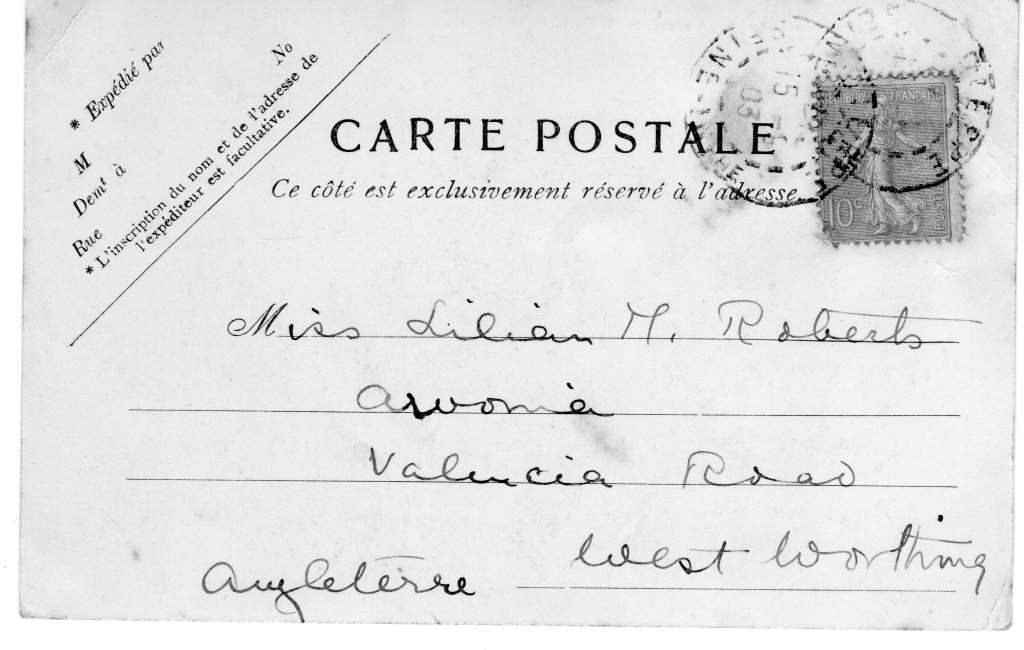 * Expédié par
No
M
Demt à
Rue
* L'inscription du nom et de l'adresse de
l'expéditeur est facultative.
CARTE POSTALE
Ce côté est exclusivement réservé à l'adresse.
RÉPUBLIQUE FRANÇAISE
10c
15
03
Miss Lilian M. Roberts
Arvonia
Valencia Road
West Worthing
Angleterre